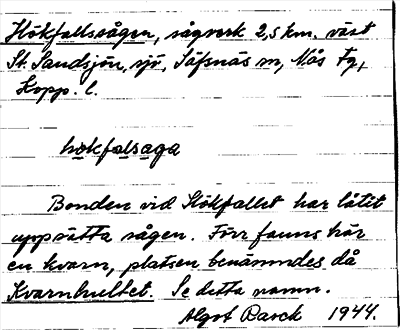 Hökfallssågen, sågverk 2,5 km. väst
St. Sandsjön, sjö, Säfsnäs sn, Nås tg,
Kopp. l.
hökfalsaga
Bonden vid Hökfallet har låtit
uppsätta sågen. Förr fanns här
en kvarn, platsen benämndes då
Kvarnhultet. Se detta namn.
Algot Barck 1944.